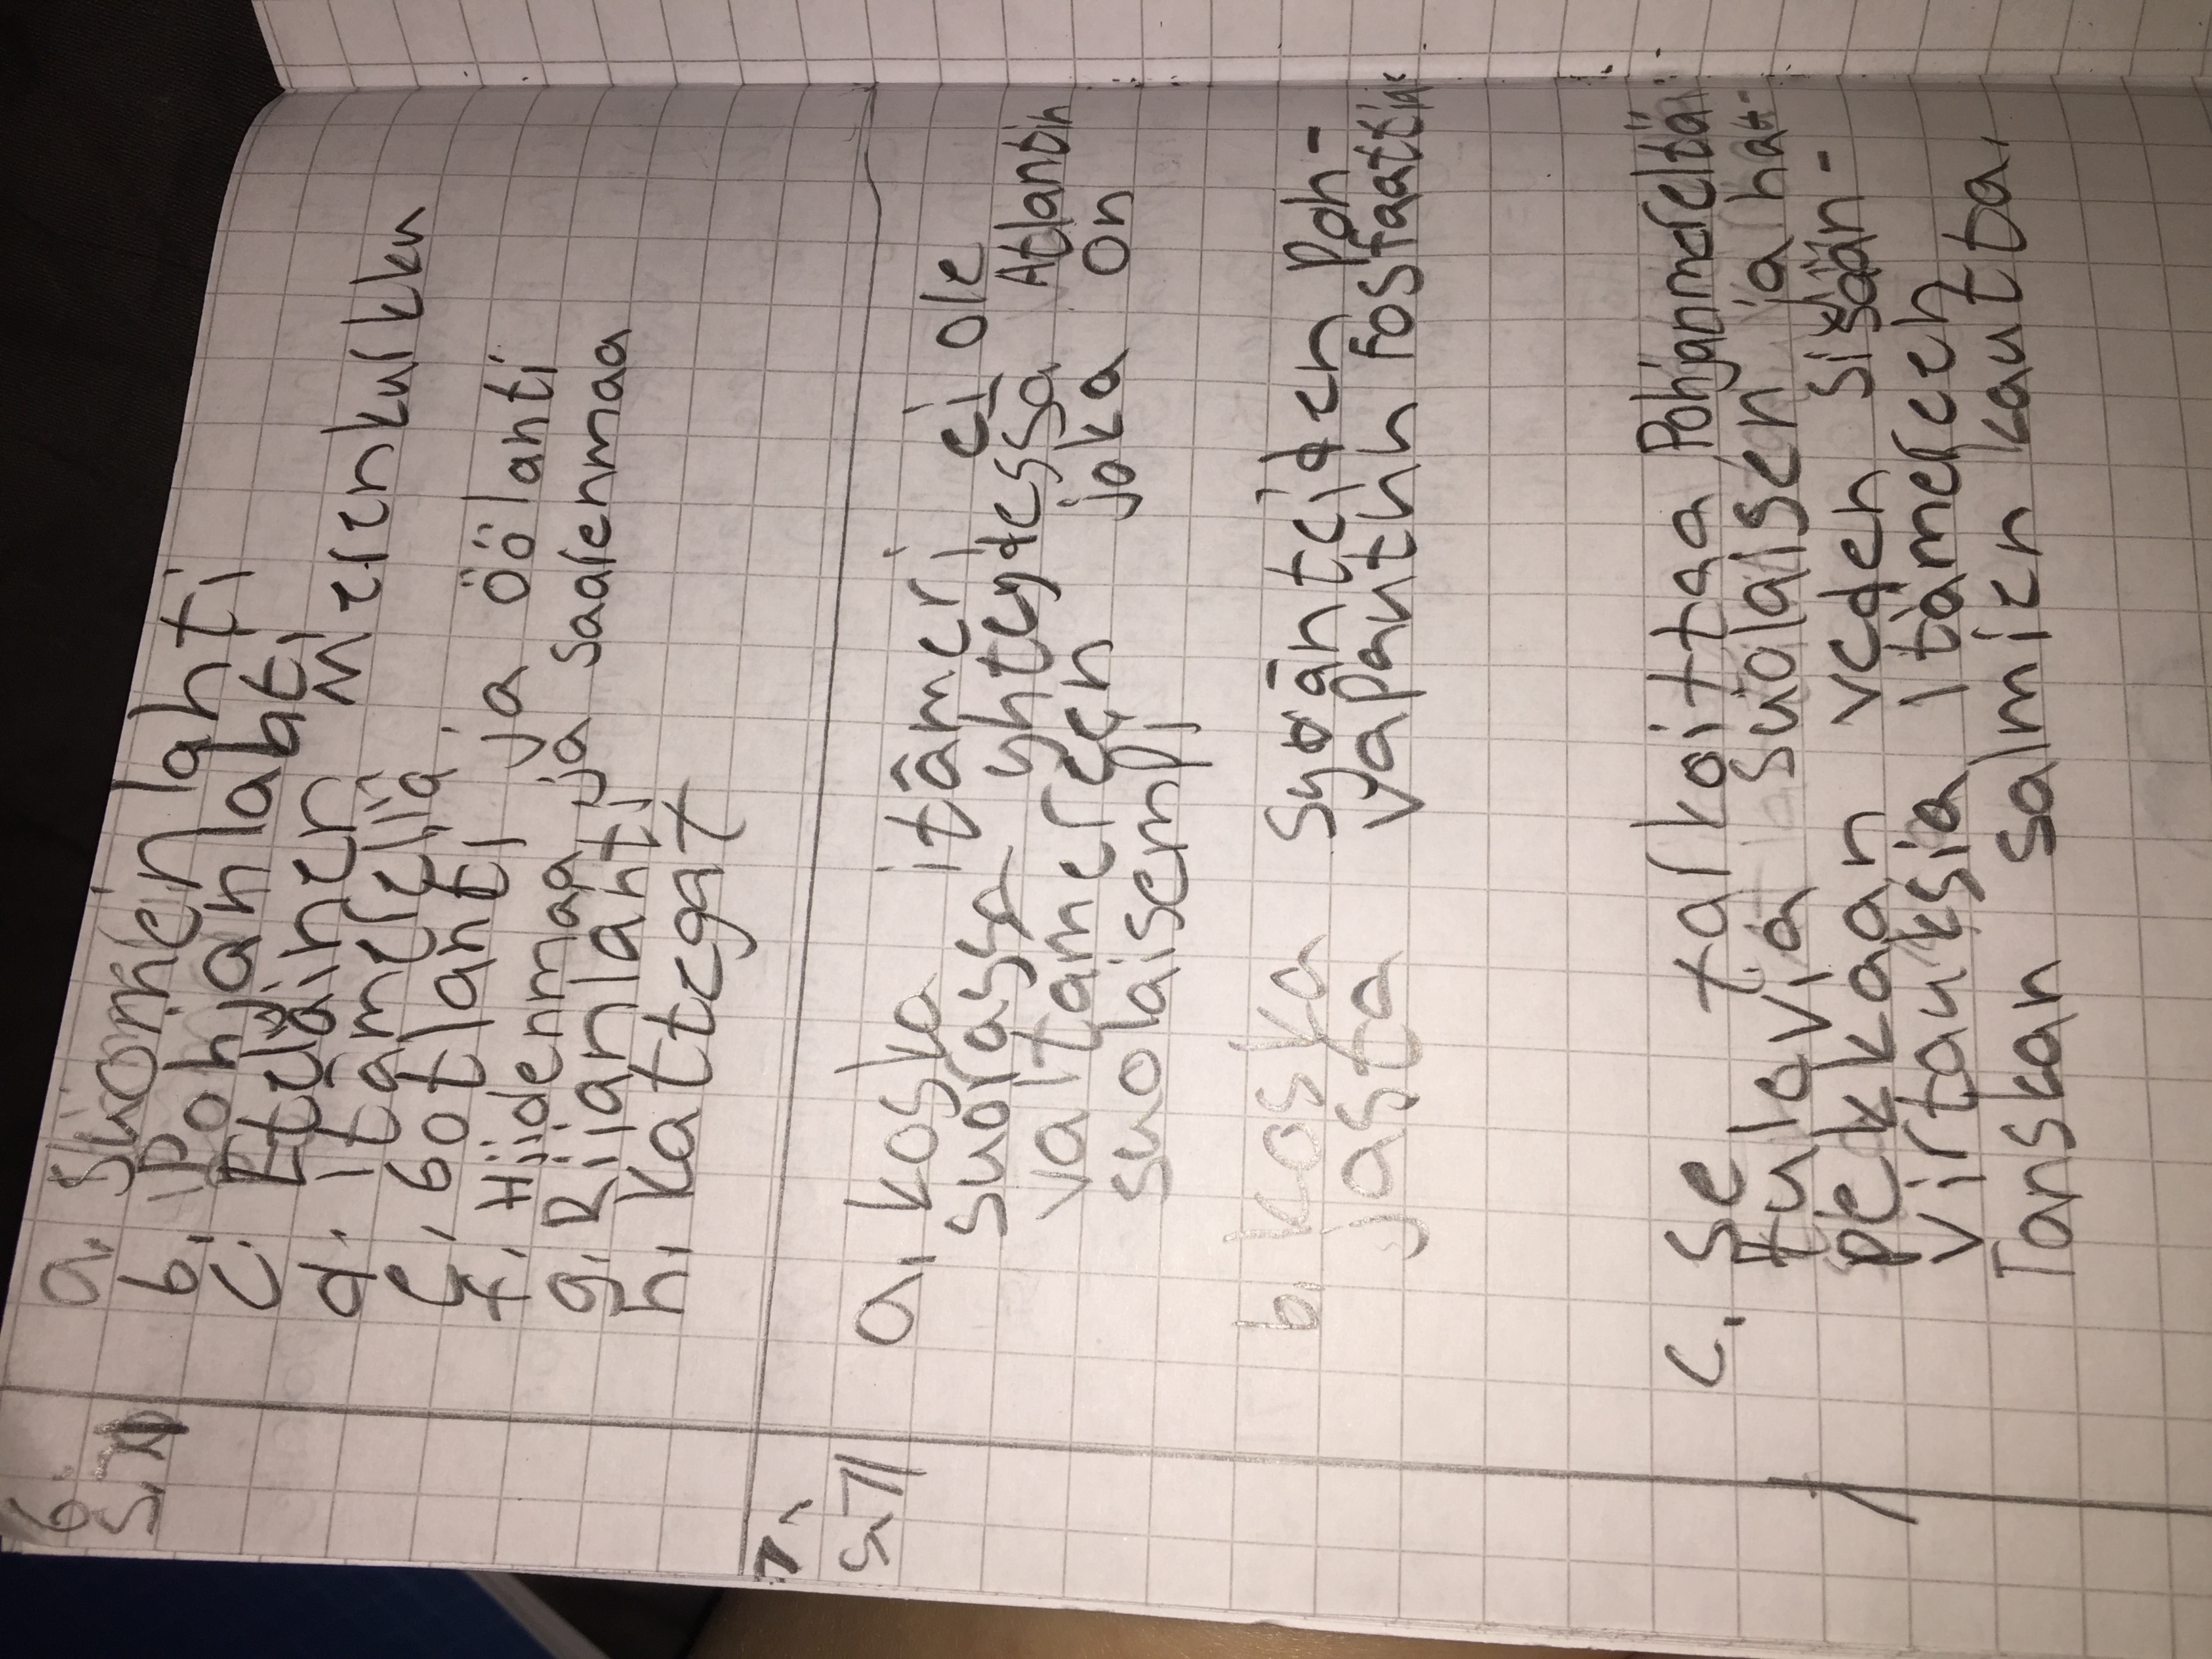 6.
s.71
a. Suomenlahti
b. Pohjanlahti
c. Eteläinen Merenkurkku
d. itämerellä.
e. Gotlanti ja Öölanti
f. Hiidenmaa ja saarenmaa
g. Riianlahti
h. Kattegat
7.
s.71
a. koska itämeri ei ole
suorassa yhteydessä Atlantin
valtamereen joka on
suolaisempi
b. koska syänteiden poh-
jasta vapautun fosfaattia.
c. Se tarkoittaa Pohjanmereltä
tulevia suolaisen ja hap-
pekkaan veden sisään-
virtauksia itämereen
Tanskan salmien kautta.